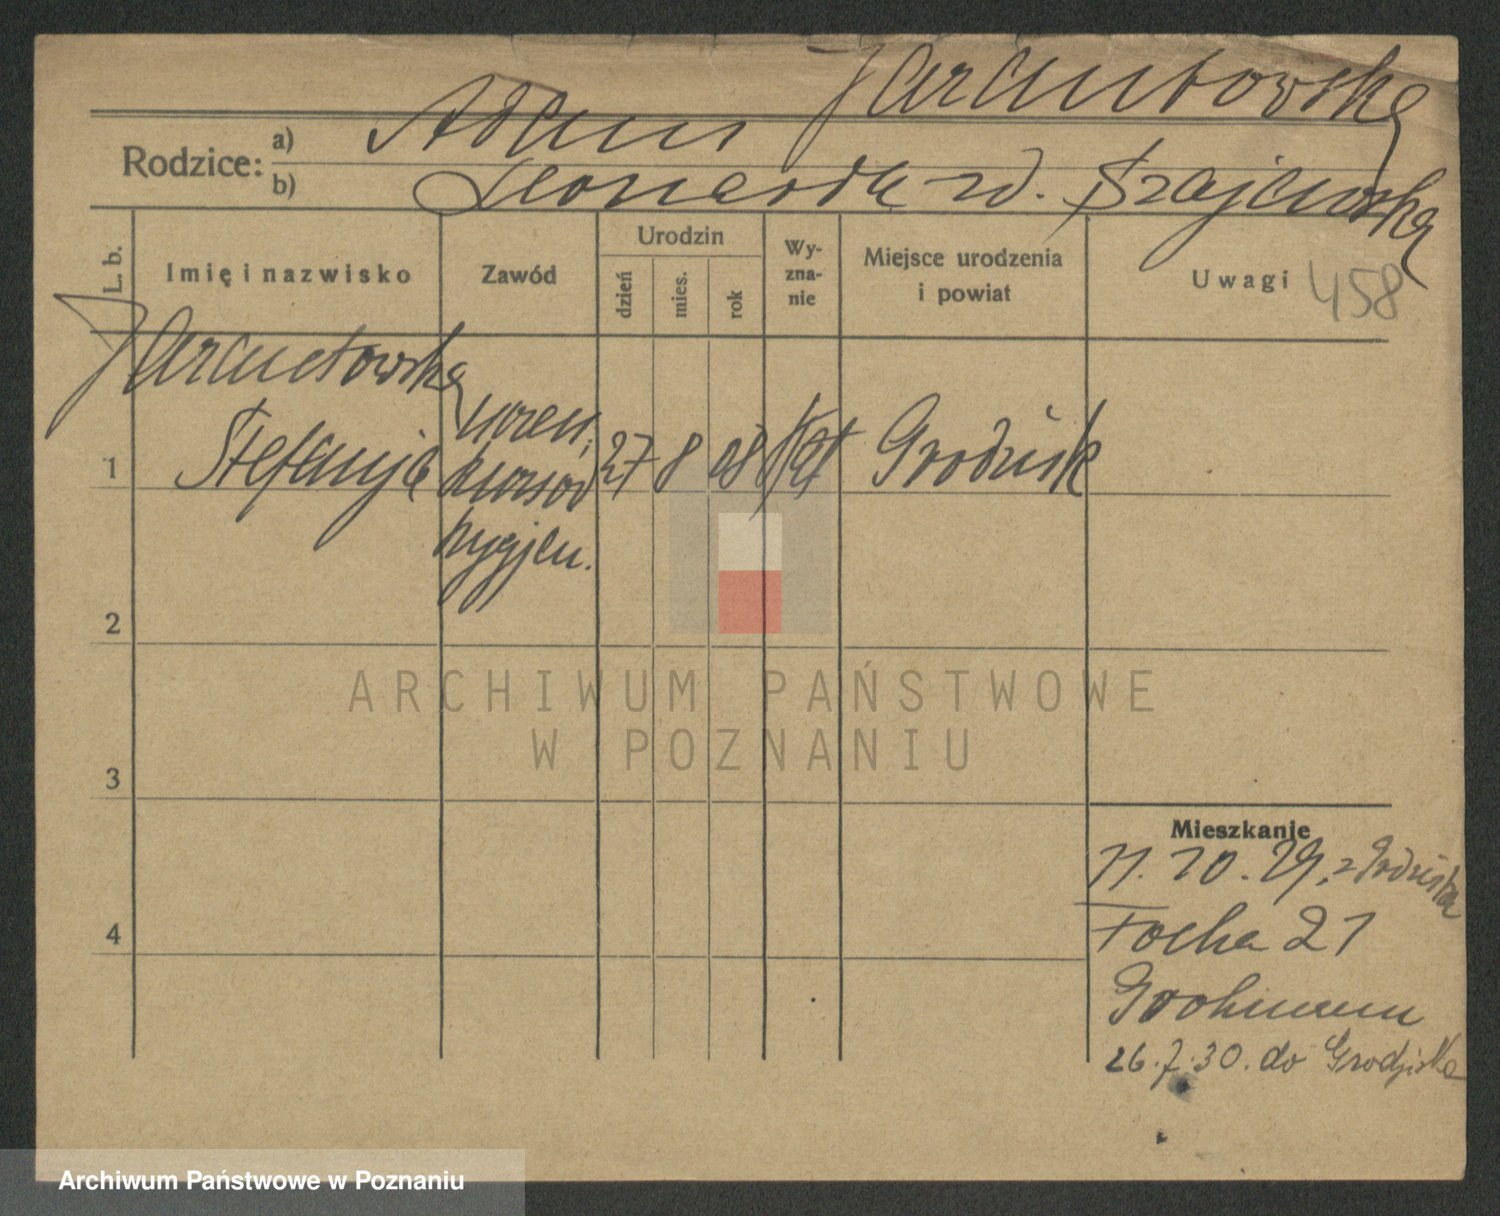 Jarantowska
Rodzice:
a) Adam
b) Leonarda zd. Szajewska
L. b.
Imię i nazwisko
Zawód
Urodzin
dzień
mies.
rok
Wy-
zna-
nie
Miejsce urodzenia
i powiat
Uwagi 458
Jarantowska
1 Stefanja
uczen.
kursów
hygjen.
27 8 08 kat Grodzisk
2
3
4
Mieszkanie
11.10.29. z Grodziska
Focha 21
Grohmann
26.7.30. do Grodziska
ARCHIWUM PAŃSTWOWE
W POZNANIU
Archiwum Państwowe w Poznaniu